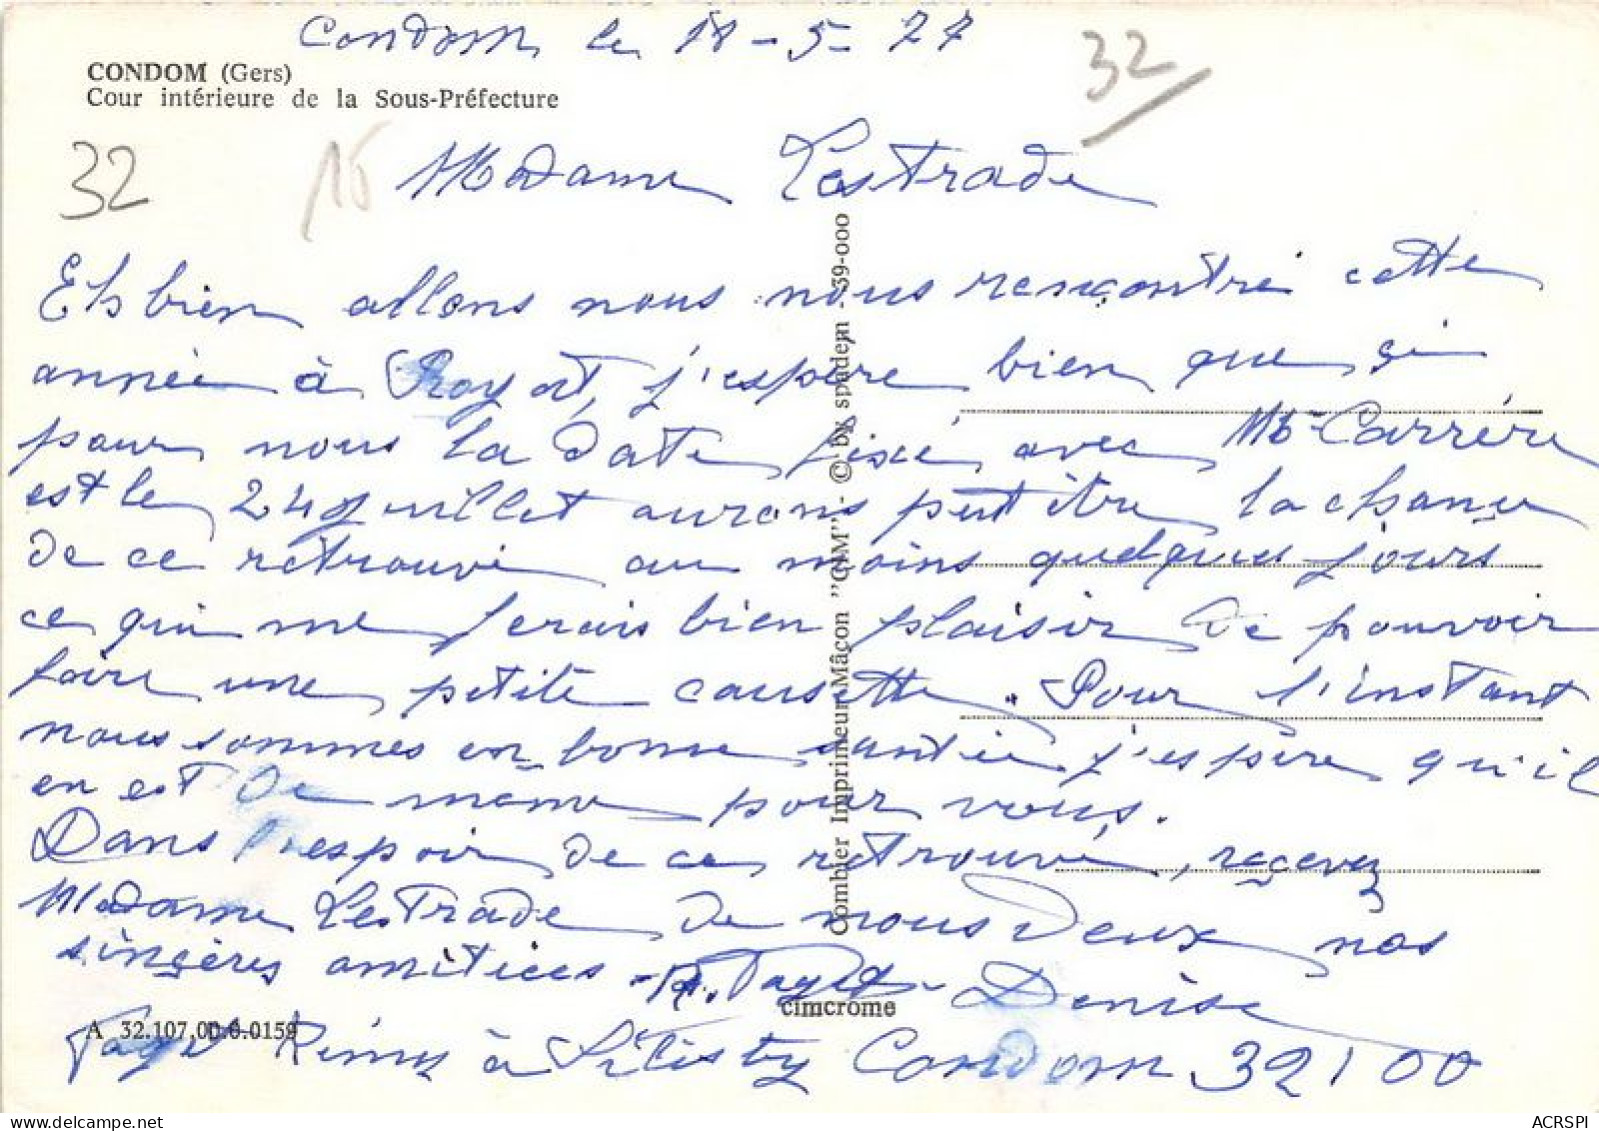 Condom le 18-5-77
CONDOM (Gers)
Cour intérieure de la Sous-Préfecture
32
32
15
Madame Lestrade
Eh bien allons nous nous rencontré cette
année à Royat, j'espère bien que si
pour nous la date fixé avec Mr Carrère
est le 24 juillet aurons peut être la chance
de ce retrouvé au moins quelques jours
ce qui me ferais bien plaisir de pouvoir
faire une petite causette. Pour l'instant
nous sommes en bonne santée j'espère qu'il
en est de même pour vous.
Dans l'espoir de ce retrouvé, reçevez
Madame Lestrade de nous deux nos
sinçères amitiées - R. Taget - Denise
Taget Rémy à Condom 32100
Combier Imprimeur Mâcon "CIM" - © by spadem - 39-000
cimcrome
A 32.107.00.6-0159
ACRSPI